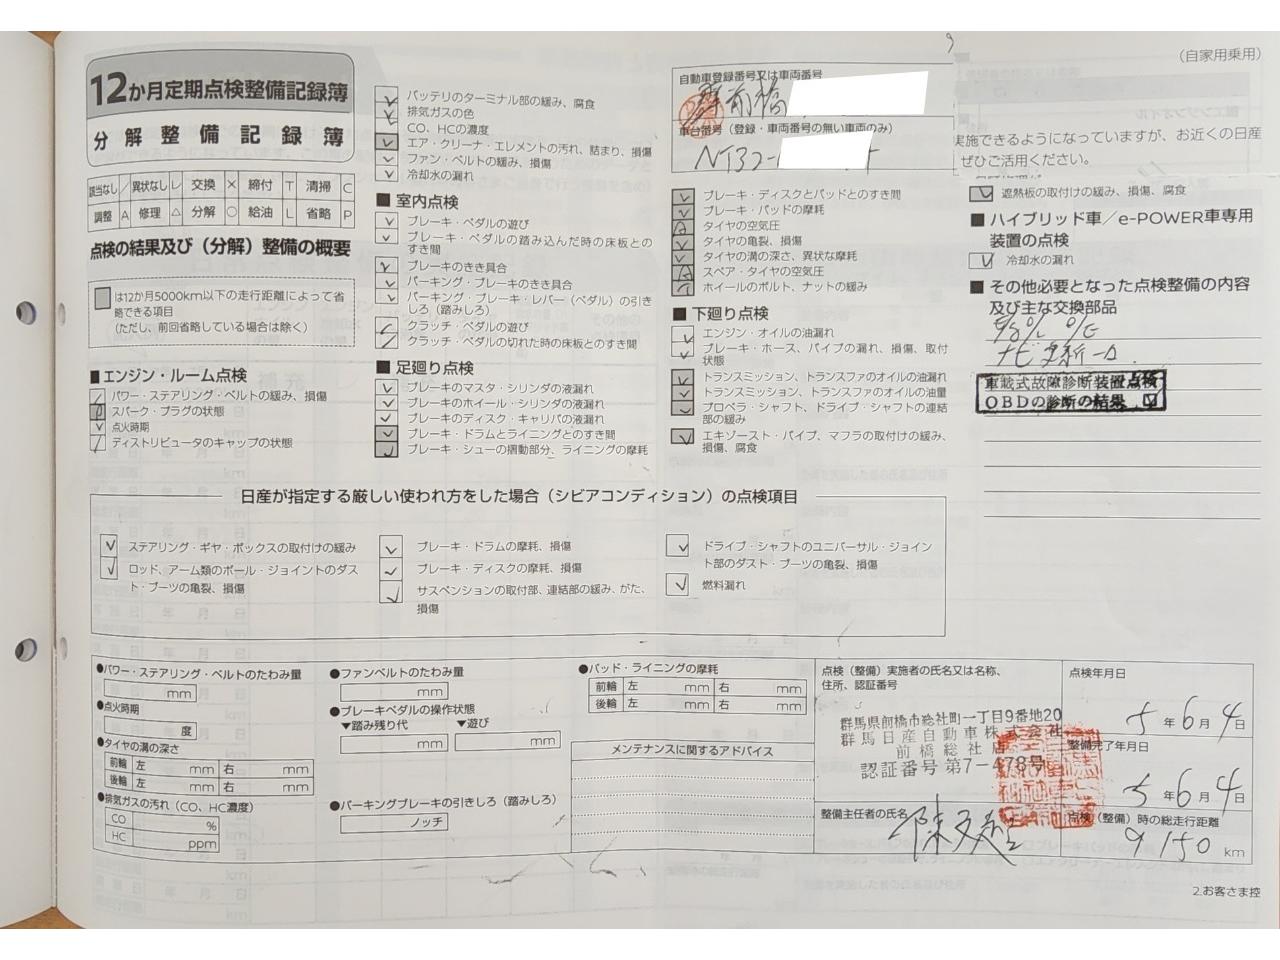 (自家用乗用)
12か月定期点検整備記録簿
分解整備記録簿
該当なし / 異状なし レ 交換 × 締付 T 清掃 C
調整 A 修理 △ 分解 ○ 給油 L 省略 P
点検の結果及び(分解)整備の概要
は12か月5000km以下の走行距離によって省
略できる項目
(ただし、前回省略している場合は除く)
■エンジン・ルーム点検
/ パワー・ステアリング・ベルトの緩み、損傷
P スパーク・プラグの状態
レ 点火時期
/ ディストリビュータのキャップの状態
レ バッテリのターミナル部の緩み、腐食
レ 排気ガスの色
レ CO、HCの濃度
レ エア・クリーナ・エレメントの汚れ、詰まり、損傷
レ ファン・ベルトの緩み、損傷
レ 冷却水の漏れ
■室内点検
レ ブレーキ・ペダルの遊び
レ ブレーキ・ペダルの踏み込んだ時の床板との
すき間
レ ブレーキのきき具合
レ パーキング・ブレーキのきき具合
レ パーキング・ブレーキ・レバー(ペダル)の引き
しろ(踏みしろ)
クラッチ・ペダルの遊び
クラッチ・ペダルの切れた時の床板とのすき間
■足廻り点検
レ ブレーキのマスタ・シリンダの液漏れ
レ ブレーキのホイール・シリンダの液漏れ
レ ブレーキのディスク・キャリパの液漏れ
レ ブレーキ・ドラムとライニングとのすき間
レ ブレーキ・シューの摺動部分、ライニングの摩耗
自動車登録番号又は車両番号
前橋
車台番号(登録・車両番号の無い車両のみ)
NT32-
レ ブレーキ・ディスクとパッドとのすき間
レ ブレーキ・パッドの摩耗
A タイヤの空気圧
レ タイヤの亀裂、損傷
レ タイヤの溝の深さ、異状な摩耗
A スペア・タイヤの空気圧
T ホイールのボルト、ナットの緩み
■下廻り点検
レ エンジン・オイルの油漏れ
レ ブレーキ・ホース、パイプの漏れ、損傷、取付
状態
レ トランスミッション、トランスファのオイルの油漏れ
レ トランスミッション、トランスファのオイルの油量
レ プロペラ・シャフト、ドライブ・シャフトの連結
部の緩み
レ エキゾースト・パイプ、マフラの取付けの緩み、
損傷、腐食
実施できるようになっていますが、お近くの日産
ぜひご活用ください。
レ 遮熱板の取付けの緩み、損傷、腐食
■ハイブリッド車/e-POWER車専用
装置の点検
レ 冷却水の漏れ
■その他必要となった点検整備の内容
及び主な交換部品
車載式故障診断装置点検
OBDの診断の結果 レ
日産が指定する厳しい使われ方をした場合(シビアコンディション)の点検項目
レ ステアリング・ギヤ・ボックスの取付けの緩み
レ ロッド、アーム類のボール・ジョイントのダス
ト・ブーツの亀裂、損傷
レ ブレーキ・ドラムの摩耗、損傷
レ ブレーキ・ディスクの摩耗、損傷
レ サスペンションの取付部、連結部の緩み、がた、
損傷
レ ドライブ・シャフトのユニバーサル・ジョイン
ト部のダスト・ブーツの亀裂、損傷
レ 燃料漏れ
●パワー・ステアリング・ベルトのたわみ量
mm
●点火時期
度
●タイヤの溝の深さ
前輪 左 mm 右 mm
後輪 左 mm 右 mm
●排気ガスの汚れ(CO、HC濃度)
CO %
HC ppm
●ファンベルトのたわみ量
mm
●ブレーキペダルの操作状態
▼踏み残り代 ▼遊び
mm mm
●パーキングブレーキの引きしろ(踏みしろ)
ノッチ
●パッド・ライニングの摩耗
前輪 左 mm 右 mm
後輪 左 mm 右 mm
メンテナンスに関するアドバイス
点検(整備)実施者の氏名又は名称、
住所、認証番号
群馬県前橋市総社町一丁目9番地20
群馬日産自動車株式会社
前橋総社店
認証番号 第7-478号
整備主任者の氏名
点検年月日
5年6月4日
整備完了年月日
5年6月4日
点検(整備)時の総走行距離
9150km
2.お客さま控